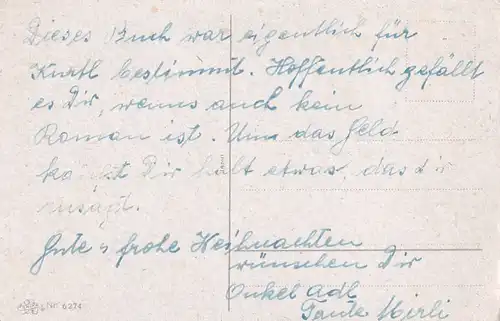 Dieses Buch war eigentlich für
Kurtl bestimmt. Hoffentlich gefällt
es Dir, wenns auch kein
Roman ist. Um das Geld
kaufst Dir halt etwas, das dir
zusagt.
Gute u frohe Weihnachten
wünschen Dir
Onkel Adl
Tante Mirli
Nr. 6274